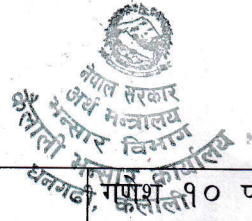 नेपाल सरकार
अर्थ मन्त्रालय
भन्सार विभाग
कैलाली भन्सार कार्यालय
धनगढी, कैलाली
गणेश १० प